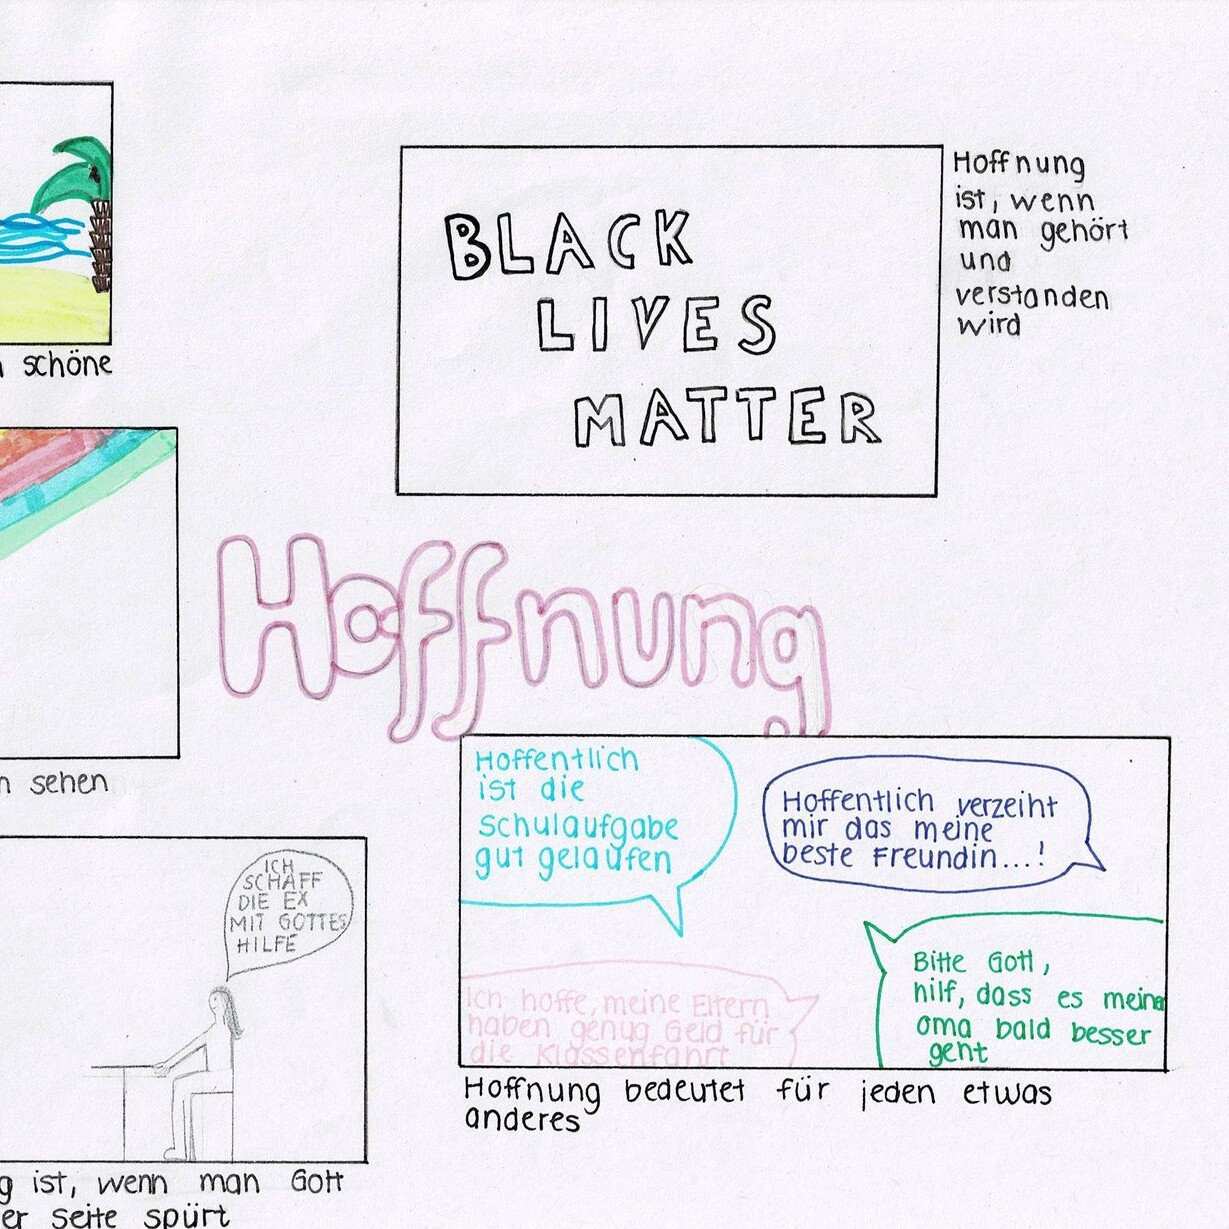 BLACK
LIVES
MATTER
Hoffnung
ist, wenn
man gehört
und
verstanden
wird
schöne
Hoffnung
n sehen
Hoffentlich
ist die
schulaufgabe
gut gelaufen
Hoffentlich verzeiht
mir das meine
beste Freundin...!
Ich hoffe, meine Eltern
haben genug Geld für
die Klassenfahrt
Bitte Gott,
hilf, dass es meina
oma bald besser
geht
Hoffnung bedeutet für jeden etwas
anderes
ICH
SCHAFF
DIE EX
MIT GOTTES
HILFE
g ist, wenn man Gott
er seite spürt